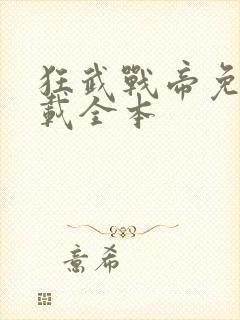 狂武戰帝免
載全本
意希